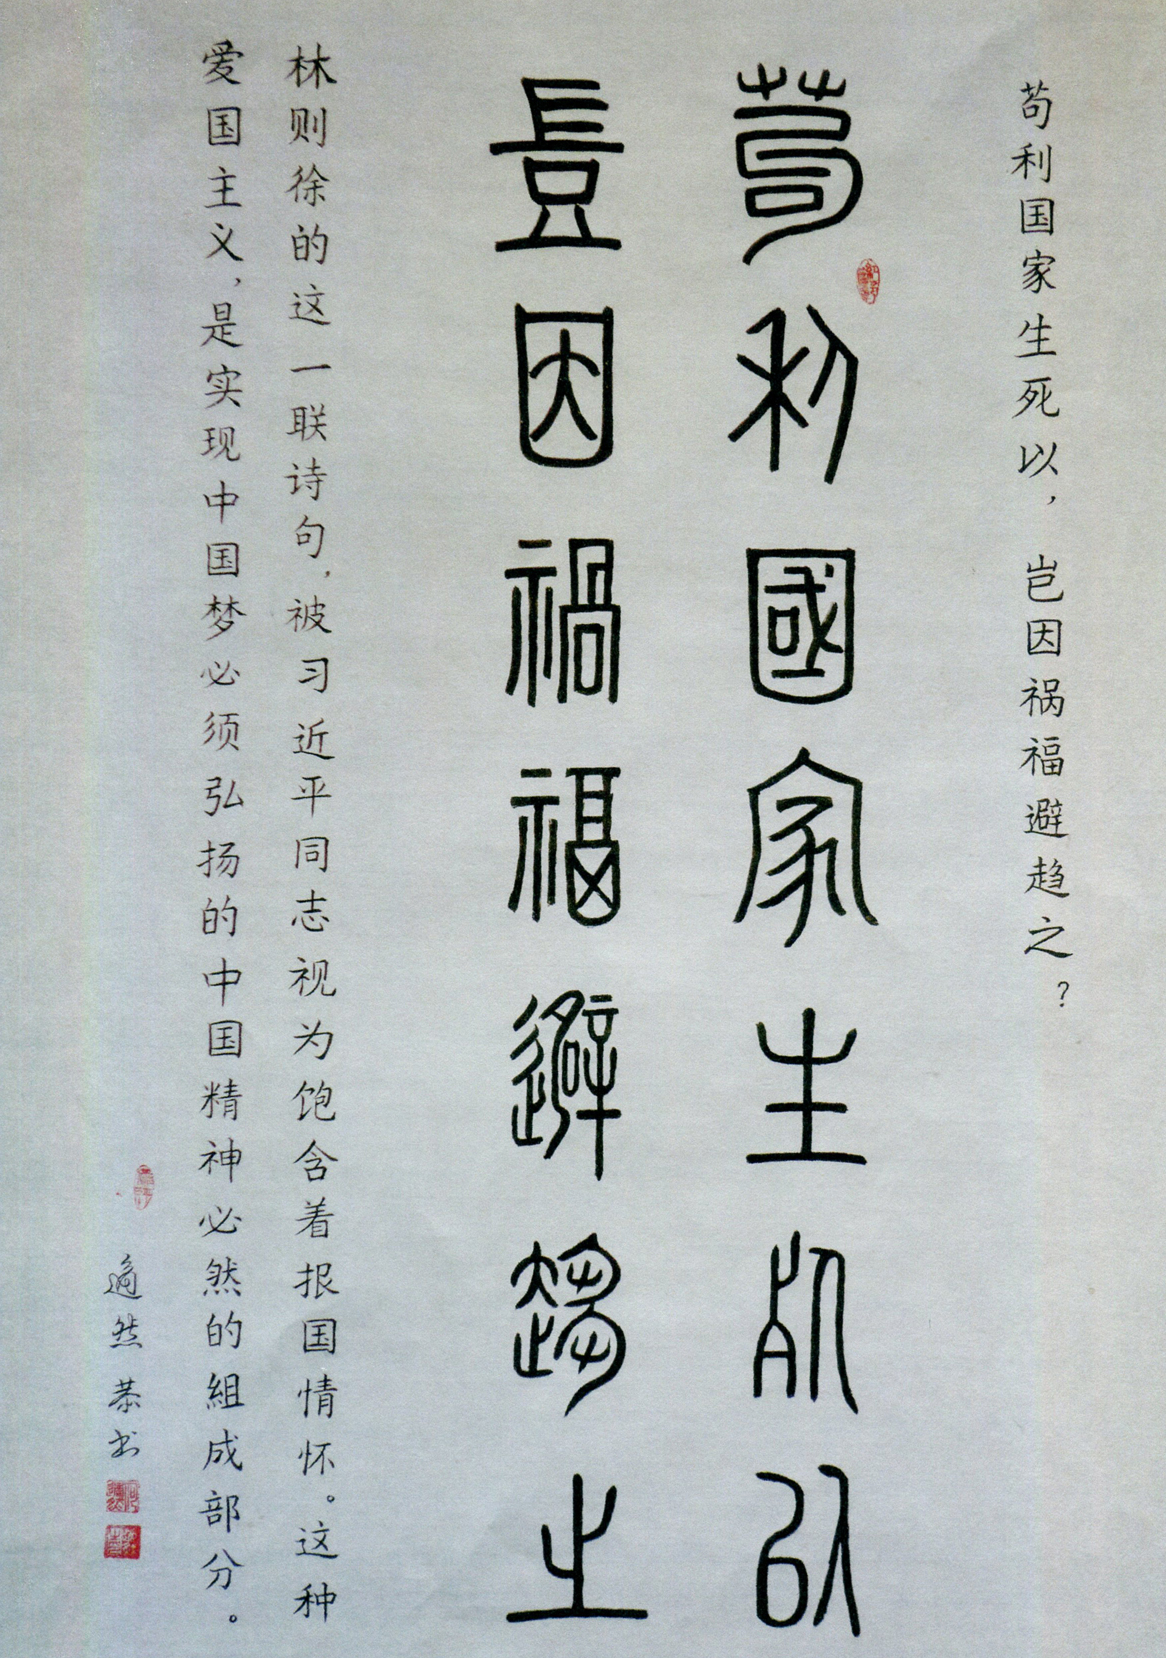 苟利国家生死以，岂因祸福避趋之？
苟利國家生死以
豈因禍福避趨之
林则徐的这一联诗句，被习近平同志视为饱含着报国情怀。这种
爱国主义，是实现中国梦必须弘扬的中国精神必然的組成部分。
適然恭书